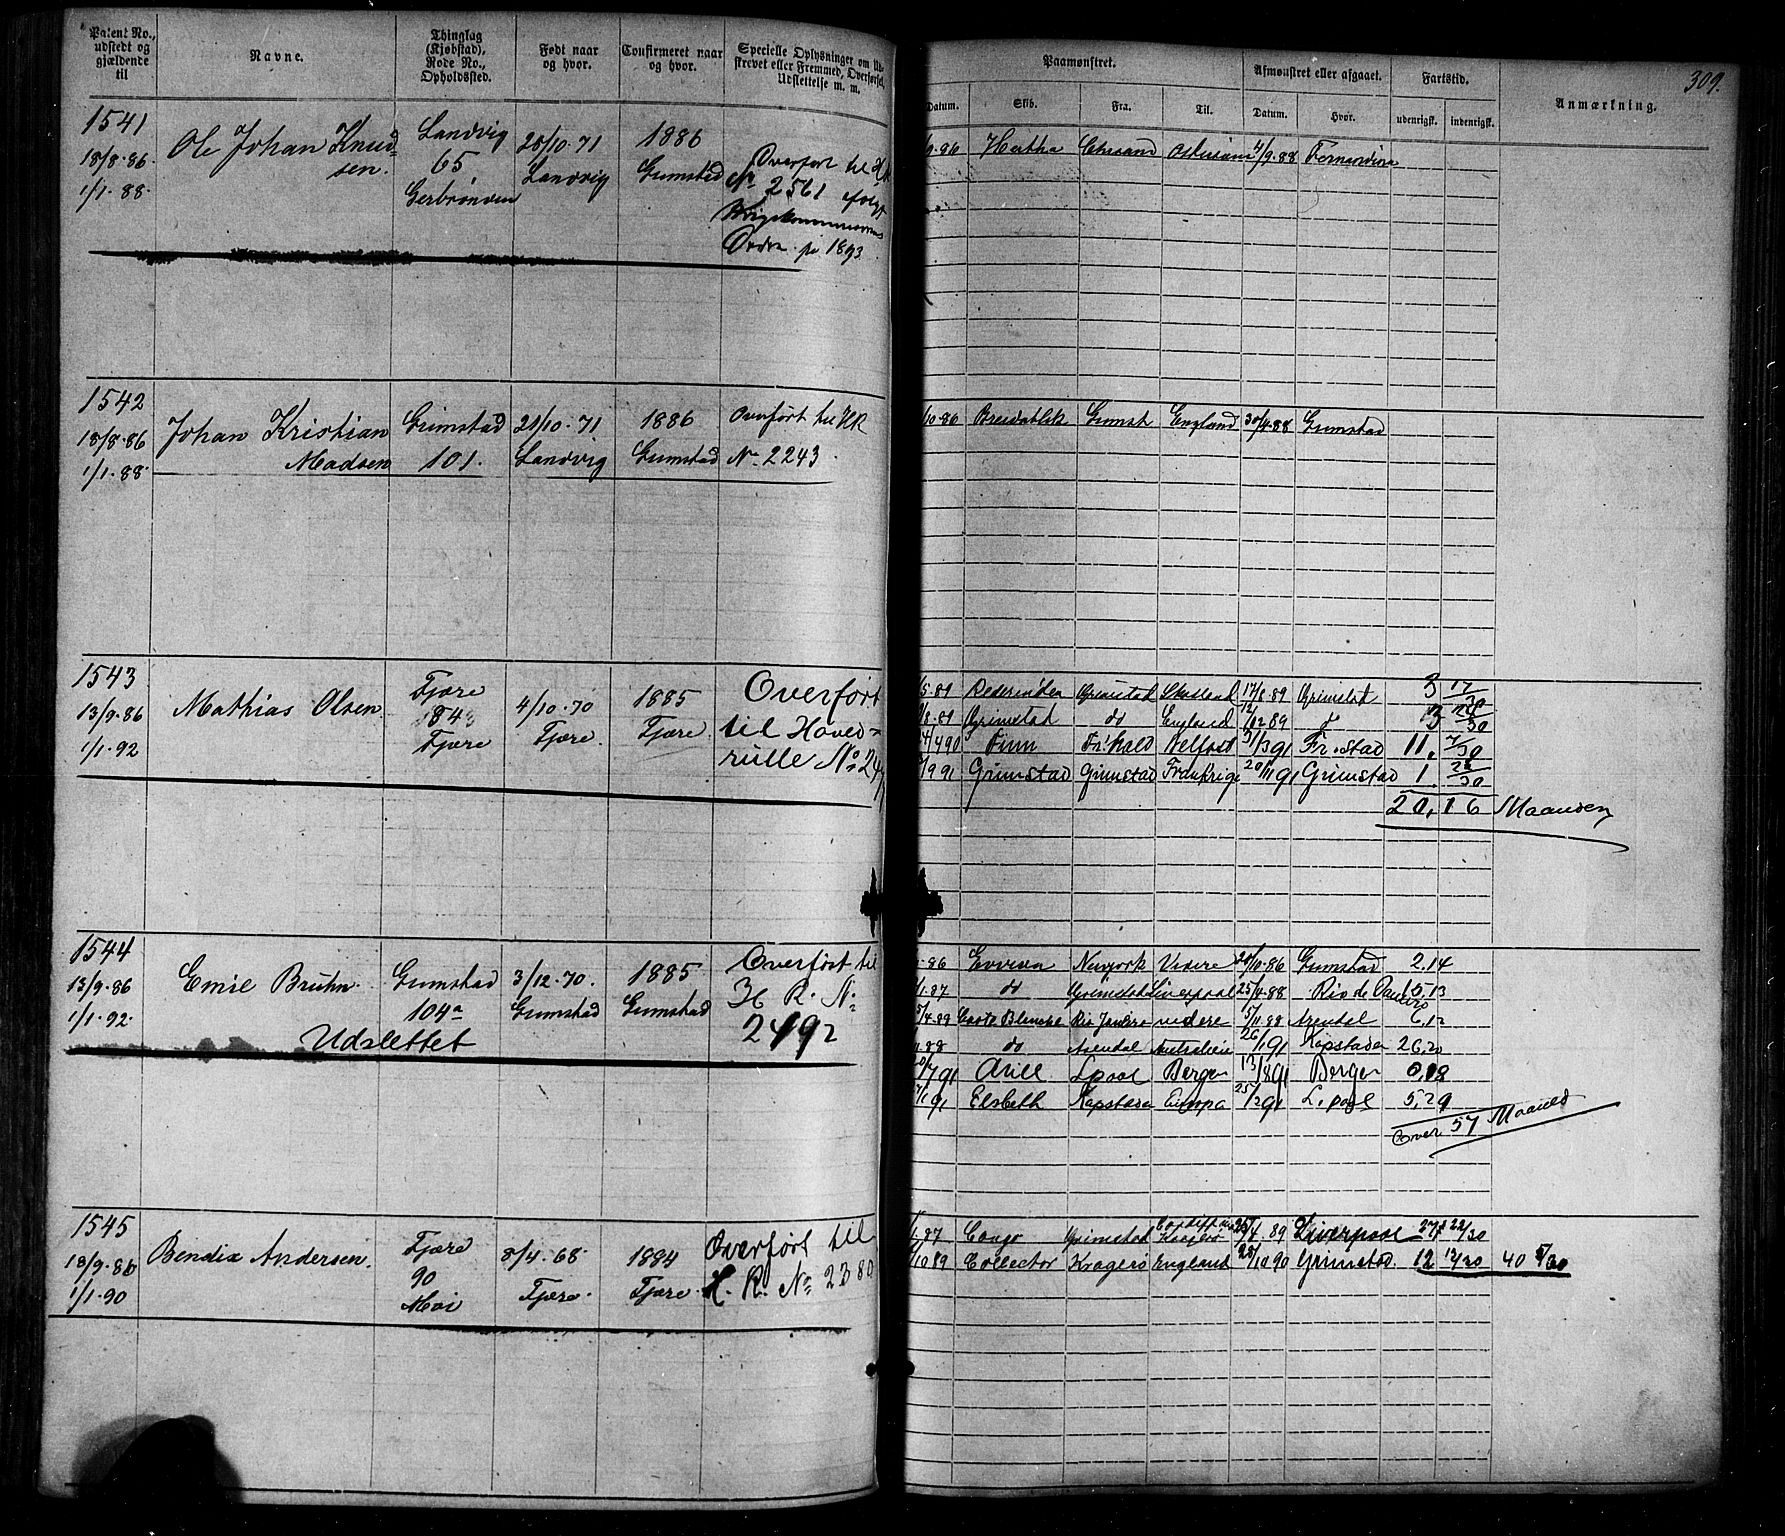 Patent No., udstedt og gjældende til
Navne.
Thinglag (Kjøbstad), Rode No., Opholdssted.
Født naar og hvor.
Confirmeret naar og hvor.
Specielle Oplysninger om Ud- skrevet eller Fremmed, Overførsel, Udslettelse m. m.
Paamønstret.
Datum. Skib. Fra. Til.
Afmønstret eller afgaaet.
Datum. Hvor.
Fartstid.
udenrigsk. indenrigsk.
Anmærkning.
309.
1541
18/8.86
1/1.88
Ole Johan Knud-
sen.
Landvig
65
Gerbrønden
28/10.71
Landvig
1886
Grimstad
Overført til
No 2561 ifølge
Ordre på 1893
9.86 Hertha Chrsand 9.88
1542
18/8.86
1/1.88
Johan Kristian
Madsen
Grimstad
101.
21/10.71
Landvig
1886
Grimstad
Overført til HR
No. 2243
10.86 Breidablik Grimst England 30/4.88 Grimstad
1543
13/9.86
1/1.92
Mathias Olsen
Fjære
84
Fjære
4/10.70
Fjære.
1885
Fjære
Overført
til Hoved-
rulle No. 24
5.89 Grimstad 17/8.89 Grimstad 3 17/30
8.89 Grimstad do England 12/12 89 3
4/4 90 Finn Belfast 31/3 91 Fr.stad 11. 7/30
9 91 Grimstad Grimstad 20/11 91 Grimstad 1 22/30
20,16 Maaneder
1544
13/9.86
1/1.92
Emil Bruhn.
Udslettet
Grimstad
104a
3/12.70.
Grimstad
1885
Grimstad
Overført til
H R. No:
2492
86 Newyork Videre 28/10.86 Grimstad 2.14
1.87 do Grimstad Liverpool 25/4.88 Rio de Janeiro 13
5/4.89 Rio Janeiro videre 5/11 88 Arendal 6,12
88 do Arendal Australien 26/1 91 Kapstaden 26,20
7 91 Lpool Bergen 13/8 91 Bergen 0,18
1 91 Elsbeth Kapstaden Europa 25/2 91 L.pool 5,29
Over 57 Maaned
1545
18/9.86
1/1.90
Bendix Andersen.
Fjære
90
Moi
8/4.68
Fjære.
1884
Fjære.
Overført til
H. R. No 2380
.87 Congo Grimstad 4 89 Liverpool 27 22/30
10 89 Collector Kragerø England 28/10 90 Grimstad. 12 13/30 40 5/30